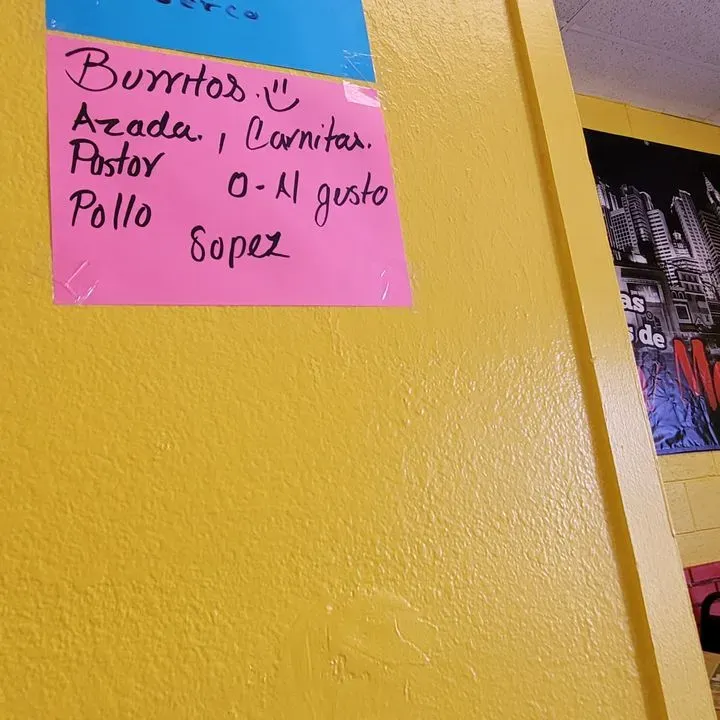 Burritos.
Azada. , Carnitas.
Pastor
O-Al gusto
Pollo
Sopez
as
s de